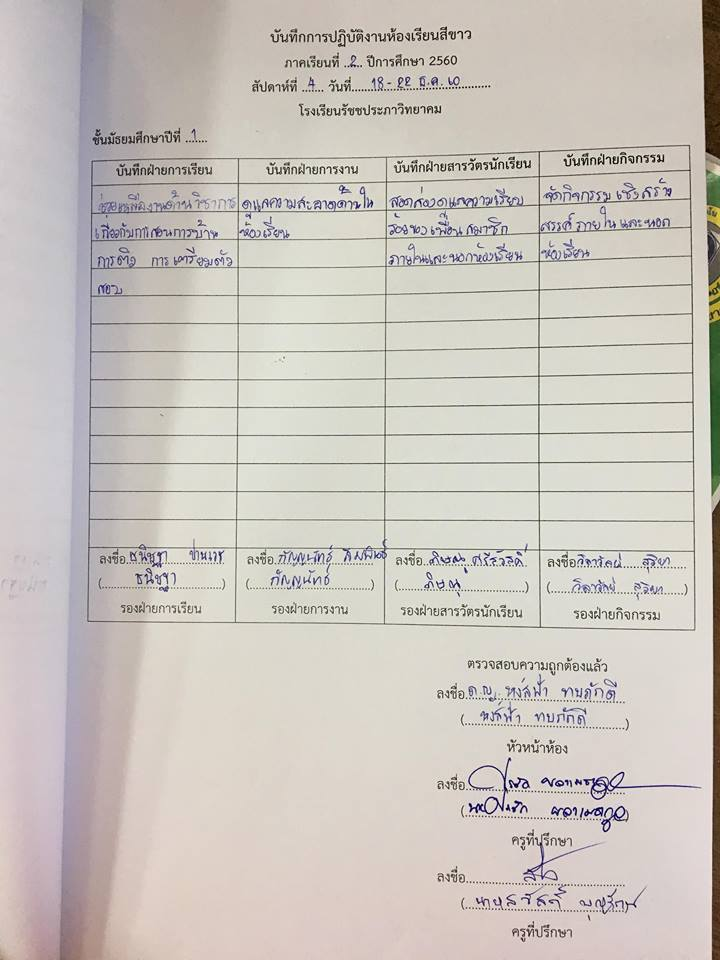 บันทึกการปฏิบัติงานห้องเรียนสีขาว
ภาคเรียนที่ ..2.. ปีการศึกษา 2560
สัปดาห์ที่ .4.. วันที่......18-22 ธ.ค. 60
โรงเรียนรัชชประภาวิทยาคม
ชั้นมัธยมศึกษาปีที่ ..1...
บันทึกฝ่ายการเรียน บันทึกฝ่ายการงาน บันทึกฝ่ายสารวัตรนักเรียน บันทึกฝ่ายกิจกรรม
ช่วยเหลืองานด้านวิชาการ ดูแลความสะอาดภายใน สอดส่องดูแลความเรียบ จัดกิจกรรมเชิงสร้าง
เกี่ยวกับการสอนการบ้าน ห้องเรียน ร้อยของเพื่อนสมาชิก สรรค์ภายในและนอก
การติว การเตรียมตัว ภายในและนอกห้องเรียน ห้องเรียน
สอบ
ลงชื่อ ธนิชฐา ลงชื่อ กัญญนัทธ์ ลงชื่อ ภิษณุ ศรีสวัสดิ์ ลงชื่อ สุริยา
(ธนิชฐา) (กัญญนัทธ์) (ภิษณุ) (สุริยา)
รองฝ่ายการเรียน รองฝ่ายการงาน รองฝ่ายสารวัตรนักเรียน รองฝ่ายกิจกรรม
ตรวจสอบความถูกต้องแล้ว
ลงชื่อ ด.ญ. หงส์ฟ้า ทบภักดี
(หงส์ฟ้า ทบภักดี)
หัวหน้าห้อง
ลงชื่อ
ครูที่ปรึกษา
ลงชื่อ
ครูที่ปรึกษา